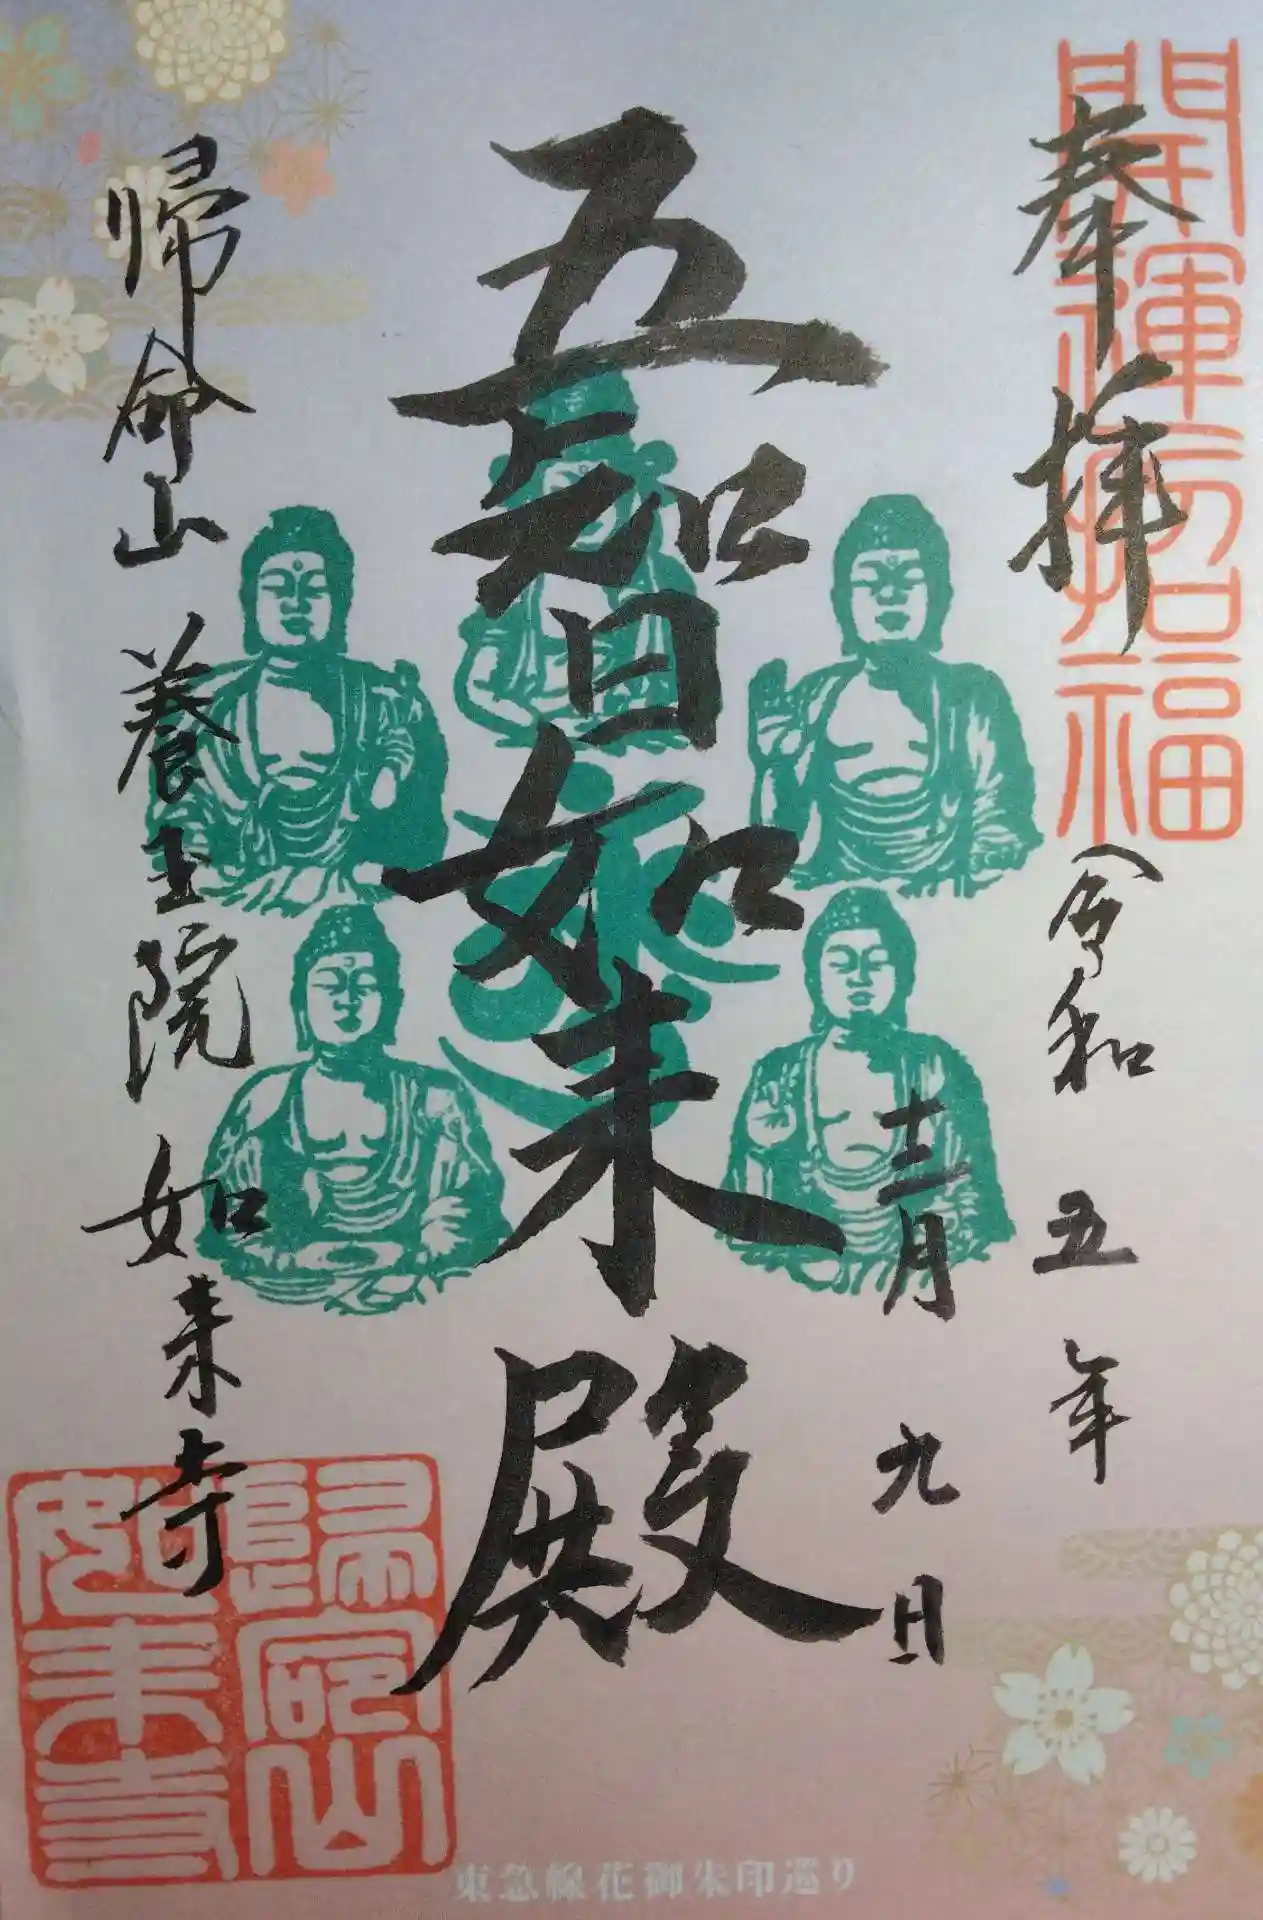 開運招福
奉拝
令和五年
十二月九日
五智如来殿
帰命山養玉院如来寺
歸命山
如来寺
東急線花御朱印巡り